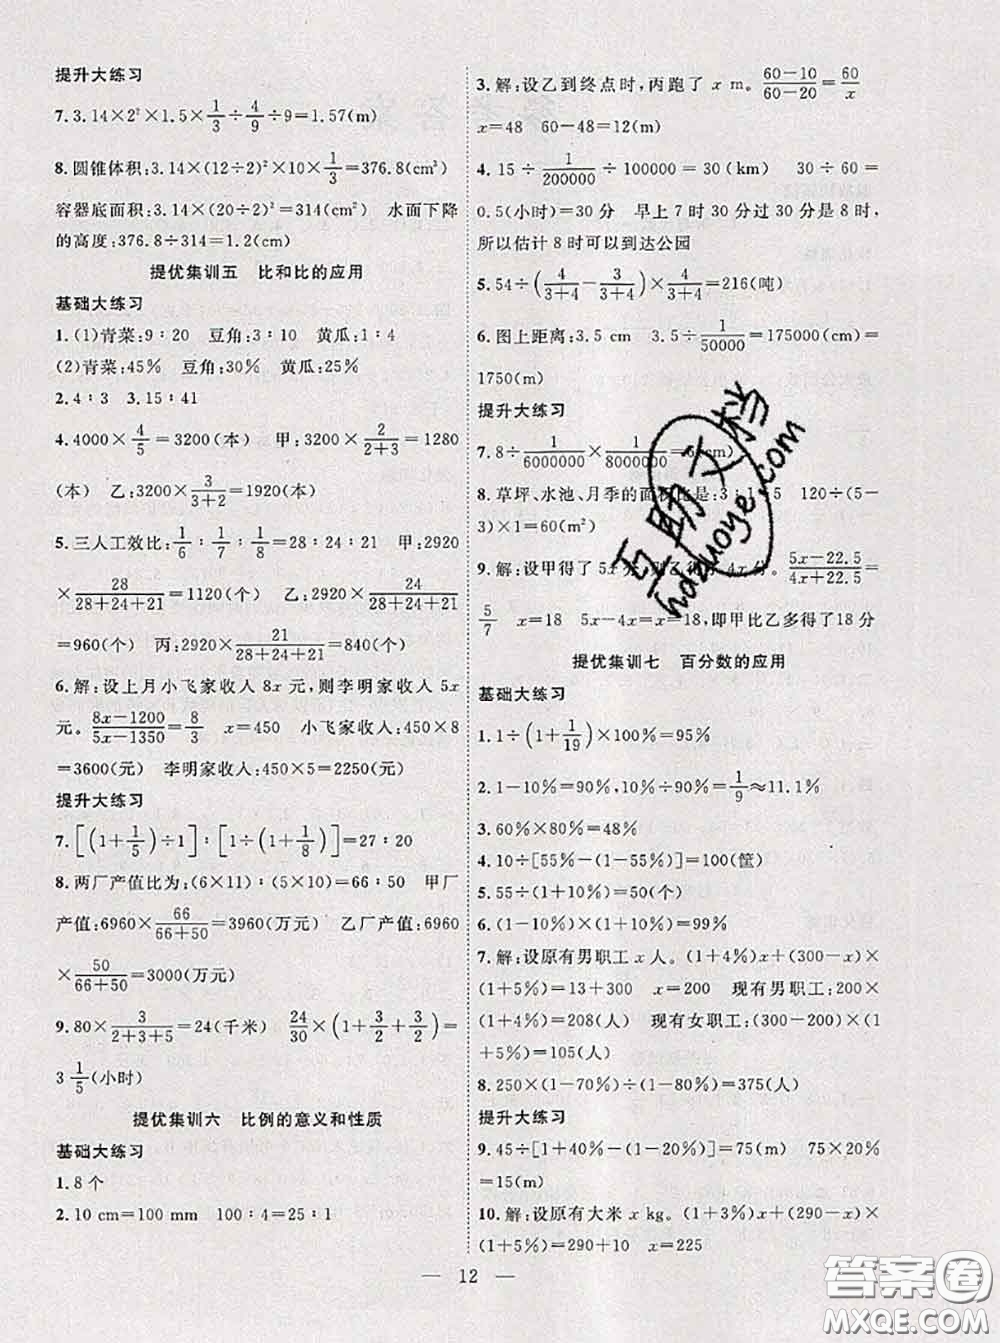 提升大练习
7.3.14×2²×1.5×1/3÷4/9÷9=1.57(m)
8.圆锥体积:3.14×(12÷2)²×10×1/3=376.8(cm³)
容器底面积:3.14×(20÷2)²=314(cm²) 水面下降
的高度:376.8÷314=1.2(cm)
提优集训五 比和比的应用
基础大练习
1.(1)青菜:9∶20 豆角:3∶10 黄瓜:1∶4
(2)青菜:45% 豆角:30% 黄瓜:25%
2.4∶3 3.15∶41
4.4000×4/5=3200(本) 甲:3200×2/(2+3)=1280
(本) 乙:3200×3/(3+2)=1920(本)
5.三人工效比:1/6∶1/7∶1/8=28∶24∶21 甲:2920
×28/(28+24+21)=1120(个) 乙:2920×24/(28+24+21)
=960(个) 丙:2920×21/(28+24+21)=840(个)
6.解:设上月小飞家收人 8x 元,则李明家收人 5x
元。(8x-1200)/(5x-1350)=8/3 x=450 小飞家收人:450×8
=3600(元) 李明家收人:450×5=2250(元)
提升大练习
7.[(1+1/5)÷1]∶[1÷(1+1/8)]=27∶20
8.两厂产值比为:(6×11)∶(5×10)=66∶50 甲厂
产值:6960×66/(66+50)=3960(万元) 乙厂产值:6960
×50/(66+50)=3000(万元)
9.80×3/(2+3+5)=24(千米) 24/30×(1+3/2+3/2)=
3 1/5(小时)
提优集训六 比例的意义和性质
基础大练习
1.8个
2.10 cm=100 mm 100∶4=25∶1
3.解:设乙到终点时,丙跑了 x m。(60-10)/(60-20)=60/x
x=48 60-48=12(m)
4.15÷1/200000÷100000=30(km) 30÷60=
0.5(小时)=30分 早上7时30分过30分是8时,
所以估计8时可以到达公园
5.54÷(4/(3+4)-3/(3+4))×4/(3+4)=216(吨)
6.图上距离:3.5 cm 3.5÷1/50000=175000(cm)=
1750(m)
提升大练习
7.8÷1/6000000×1/8000000=6(cm)
8.草坪、水池、月季的面积比是:3∶1∶5 120÷(5-
3)×1=60(m²)
9.解:设甲得了 5x 分,则乙得了 4x 分。(5x-22.5)/(4x+22.5)=
5/7 x=18 5x-4x=x=18,即甲比乙多得了18分
提优集训七 百分数的应用
基础大练习
1.1÷(1+1/19)×100%=95%
2.1-10%=90% 10%÷90%=1/9≈11.1%
3.60%×80%=48%
4.10÷[55%-(1-55%)]=100(筐)
5.55÷(1+10%)=50(个)
6.(1-10%)×(1+10%)=99%
7.解:设原有男职工 x 人。(1+4%)x+(300-x)×
(1+5%)=300+13 x=200 现有男职工:200×
(1+4%)=208(人) 现有女职工:(300-200)×(1
+5%)=105(人)
8.250×(1-70%)÷(1-80%)=375(人)
提升大练习
9.45÷[1+40%-(1-20%)]=75(m) 75×20%
=15(m)
10.解:设原有大米 x kg。(1+10%)x+(290-x)
×(1-5%)=290+10 x=225
12
互助文档
hdzuoye.com
答案圈
MXQE.COM